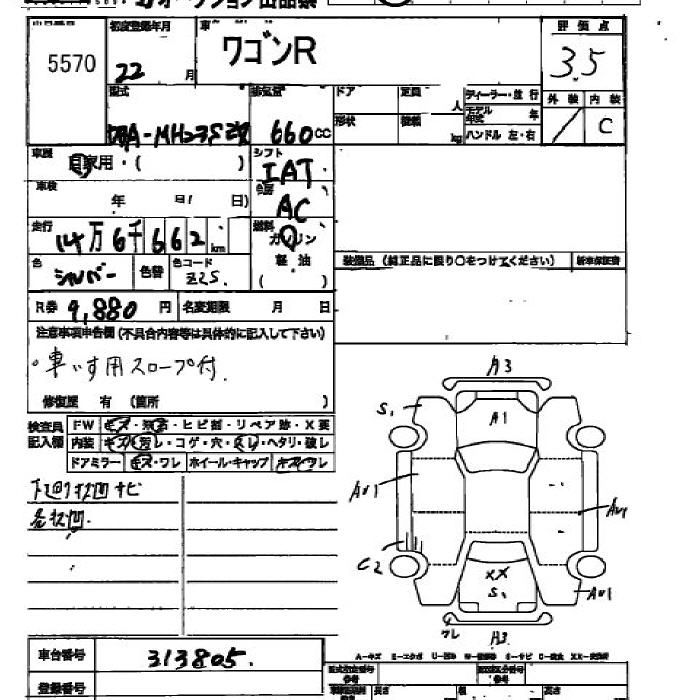 5570
初度登録年月
22 月
ワゴンR
評価点
3.5
外装 内装
C
型式
DBA-MH23S改
排気量
660 cc
ドア
定員
人
形状
積載
kg
ディーラー・並行
モデル年式 年
ハンドル 左・右
車歴
自家用・( )
シフト
IAT
車検
年 日)
AC
走行
14万6千662 km
燃料
ガソリン
軽油
( )
色
シルバー
色替
色コード
Z2S.
装備品(純正品に限り○をつけてください)
新車保証書
R券 9,880 円
名変期限 月 日
注意事項申告欄(不具合内容等は具体的に記入して下さい)
車いす用スロープ付.
修復歴 有 (箇所 )
検査員記入欄
FW キズ・飛石・ヒビ割・リペア跡・X要
内装 キズ・汚レ・コゲ・穴・スレ・ヘタリ・破レ
ドアミラー キズ・ワレ ホイール・キャップ キズ・ワレ
A3
S1
A1
AU1
AU1
C2
XX
S1
AU1
ワレ
A3
車台番号 313805.
登録番号
長さ
幅
高さ